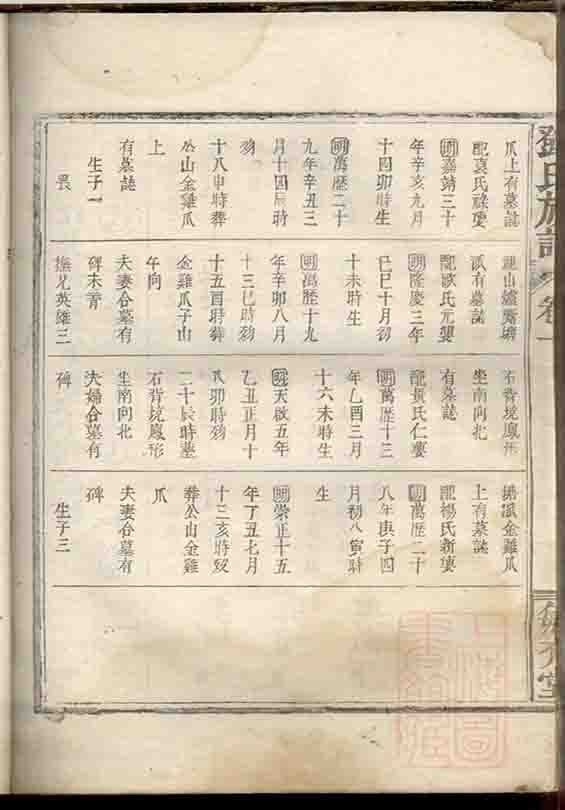 鄧氏族譜
卷一
瓜上有墓誌
配袁氏祿孆
明嘉靖三十
年辛亥九月
十四卯時生
明萬歷二十
九年辛丑三
月十四辰時
歿
十八申時葬
公山金雞瓜
上
有墓誌
生子一
畏
派有墓誌
配歐氏元孆
明隆慶三年
己巳十月初
十未時生
明萬歷十九
年辛卯八月
十三巳時歿
十五酉時葬
金雞瓜子山
午向
夫妻合墓有
碑未書
撫兄英雄三
石背境鳳形
坐南向北
有墓誌
配黃氏仁孆
明萬歷十三
年乙酉三月
十六未時生
明天啟五年
乙丑正月十
八卯時歿
二十辰時葬
石背境鳳形
坐南向北
夫婦合墓有
碑
金雞瓜
上有墓誌
配楊氏新孆
明萬歷二十
八年庚子四
月初八寅時
生
明崇正十五
年丁丑七月
十三亥時歿
葬公山金雞
瓜
夫妻合墓有
碑
生子三